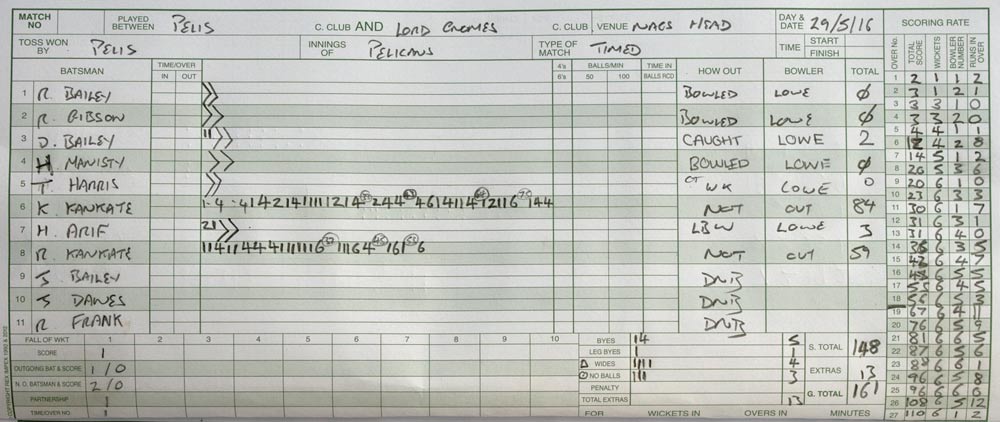 MATCH NO PLAYED BETWEEN PELIS C. CLUB AND LORD GNOMES C. CLUB VENUE NAGS HEAD DAY & DATE 29/5/16 SCORING RATE
TOSS WON BY PELIS INNINGS OF PELICANS TYPE OF MATCH TIMED TIME START FINISH OVER No. TOTAL SCORE WICKETS BOWLER NUMBER RUNS IN OVER
BATSMAN TIME/OVER IN OUT 4's 6's BALLS/MIN 50 100 TIME IN BALLS RCD HOW OUT BOWLER TOTAL
1 R. BAILEY BOWLED LOWE 0
2 R. GIBSON BOWLED LOWE 0
3 D. BAILEY 11 CAUGHT LOWE 2
4 H. MANISTY BOWLED LOWE 0
5 T HARRIS CT WK LOWE 0
6 K. KANKATE NOT OUT 84
7 H. ARIF 21 LBW LOWE 3
8 R. KANKATE NOT OUT 59
9 J BAILEY DNB
10 J DAWES DNB
11 R FRANK DNB
FALL OF WKT 1 2 3 4 5 6 7 8 9 10 BYES 14 5 S. TOTAL 148
SCORE 1 LEG BYES 1 1
OUTGOING BAT & SCORE 1/0 WIDES 1111 4 EXTRAS 13
N. O. BATSMAN & SCORE 2/0 NO BALLS 111 3
PARTNERSHIP 1 PENALTY G. TOTAL 161
TOTAL EXTRAS 13
TIME/OVER NO 1 FOR WICKETS IN OVERS IN MINUTES
1 2 1 1 2
2 3 1 2 1
3 3 3 1 0
4 3 3 2 0
5 4 4 1 1
6 12 4 2 8
7 14 5 1 2
8 20 5 3 6
9 20 6 1 0
10 23 6 3 3
11 30 6 1 7
12 31 6 3 1
13 31 6 4 0
14 36 6 3 5
15 43 6 4 7
16 48 6 5 5
17 6 4 5
18 6 5 3
19 67 6 4 11
20 76 6 5 9
21 81 6 6 5
22 87 6 5 6
23 88 6 6 1
24 96 6 5 8
25 96 6 6 0
26 108 6 5 12
27 110 6 1 2
COPYRIGHT REX IMPEX 1992 & 2012